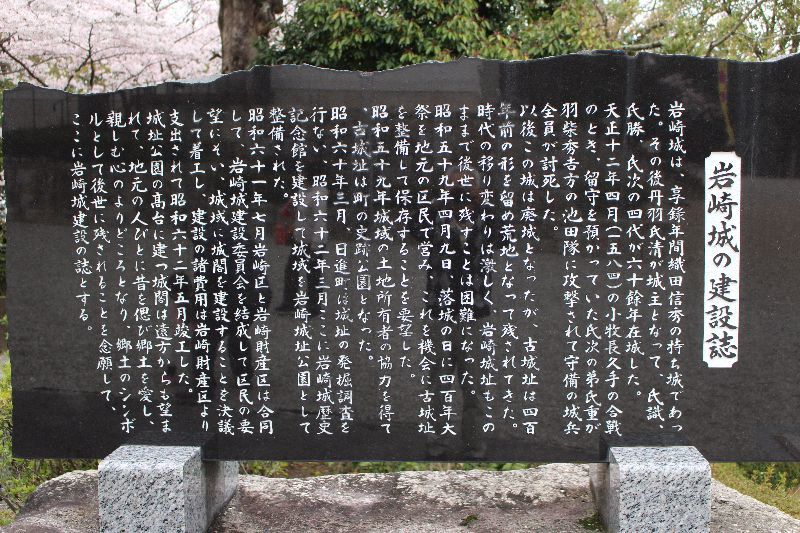 岩崎城の建設誌
岩崎城は、享録年間織田信秀の持ち城であっ
た。その後丹羽氏清が城主となって、氏識、
氏勝、氏次の四代が六十餘年在城した。
天正十二年四月(一五八四)の小牧長久手の合戦
のとき、留守を預かっていた氏次の弟氏重が
羽柴秀吉方の池田隊に攻撃されて守備の城兵
全員が討死した。
以後この城は廃城となったが、古城址は四百
年前の形を留め荒地となって残されてきた。
時代の移り変わりは激しく、岩崎城址もこの
ままで後世に残すことは困難になった。
昭和五十九年四月九日、落城の日に四百年大
祭を地元の区民で営み、これを機会に古城址
を整備して保存することを要望した。
昭和五十九年城域の土地所有者の協力を得て
、古城址は町の史跡公園となった。
昭和六十年三月、日進町は城址の発掘調査を
行ない、昭和六十二年三月ここに岩崎城歴史
記念館を建設して城域を岩崎城址公園として
整備された。
昭和六十一年七月岩崎区と岩崎財産区は合同
して、岩崎城建設委員会を結成して区民の要
望にそい、城域に城閣を建設することを決議
して着工し、建設の諸費用は岩崎財産区より
支出されて昭和六十二年五月竣工した。
城址公園の高台に建つ城閣は遠方からも望ま
れて、地元の人びとに昔を偲び郷土を愛し、
親しむ心のよりどころとなり、郷土のシンボ
ルとして後世に残されることを念願して、
ここに岩崎城建設の誌とする。